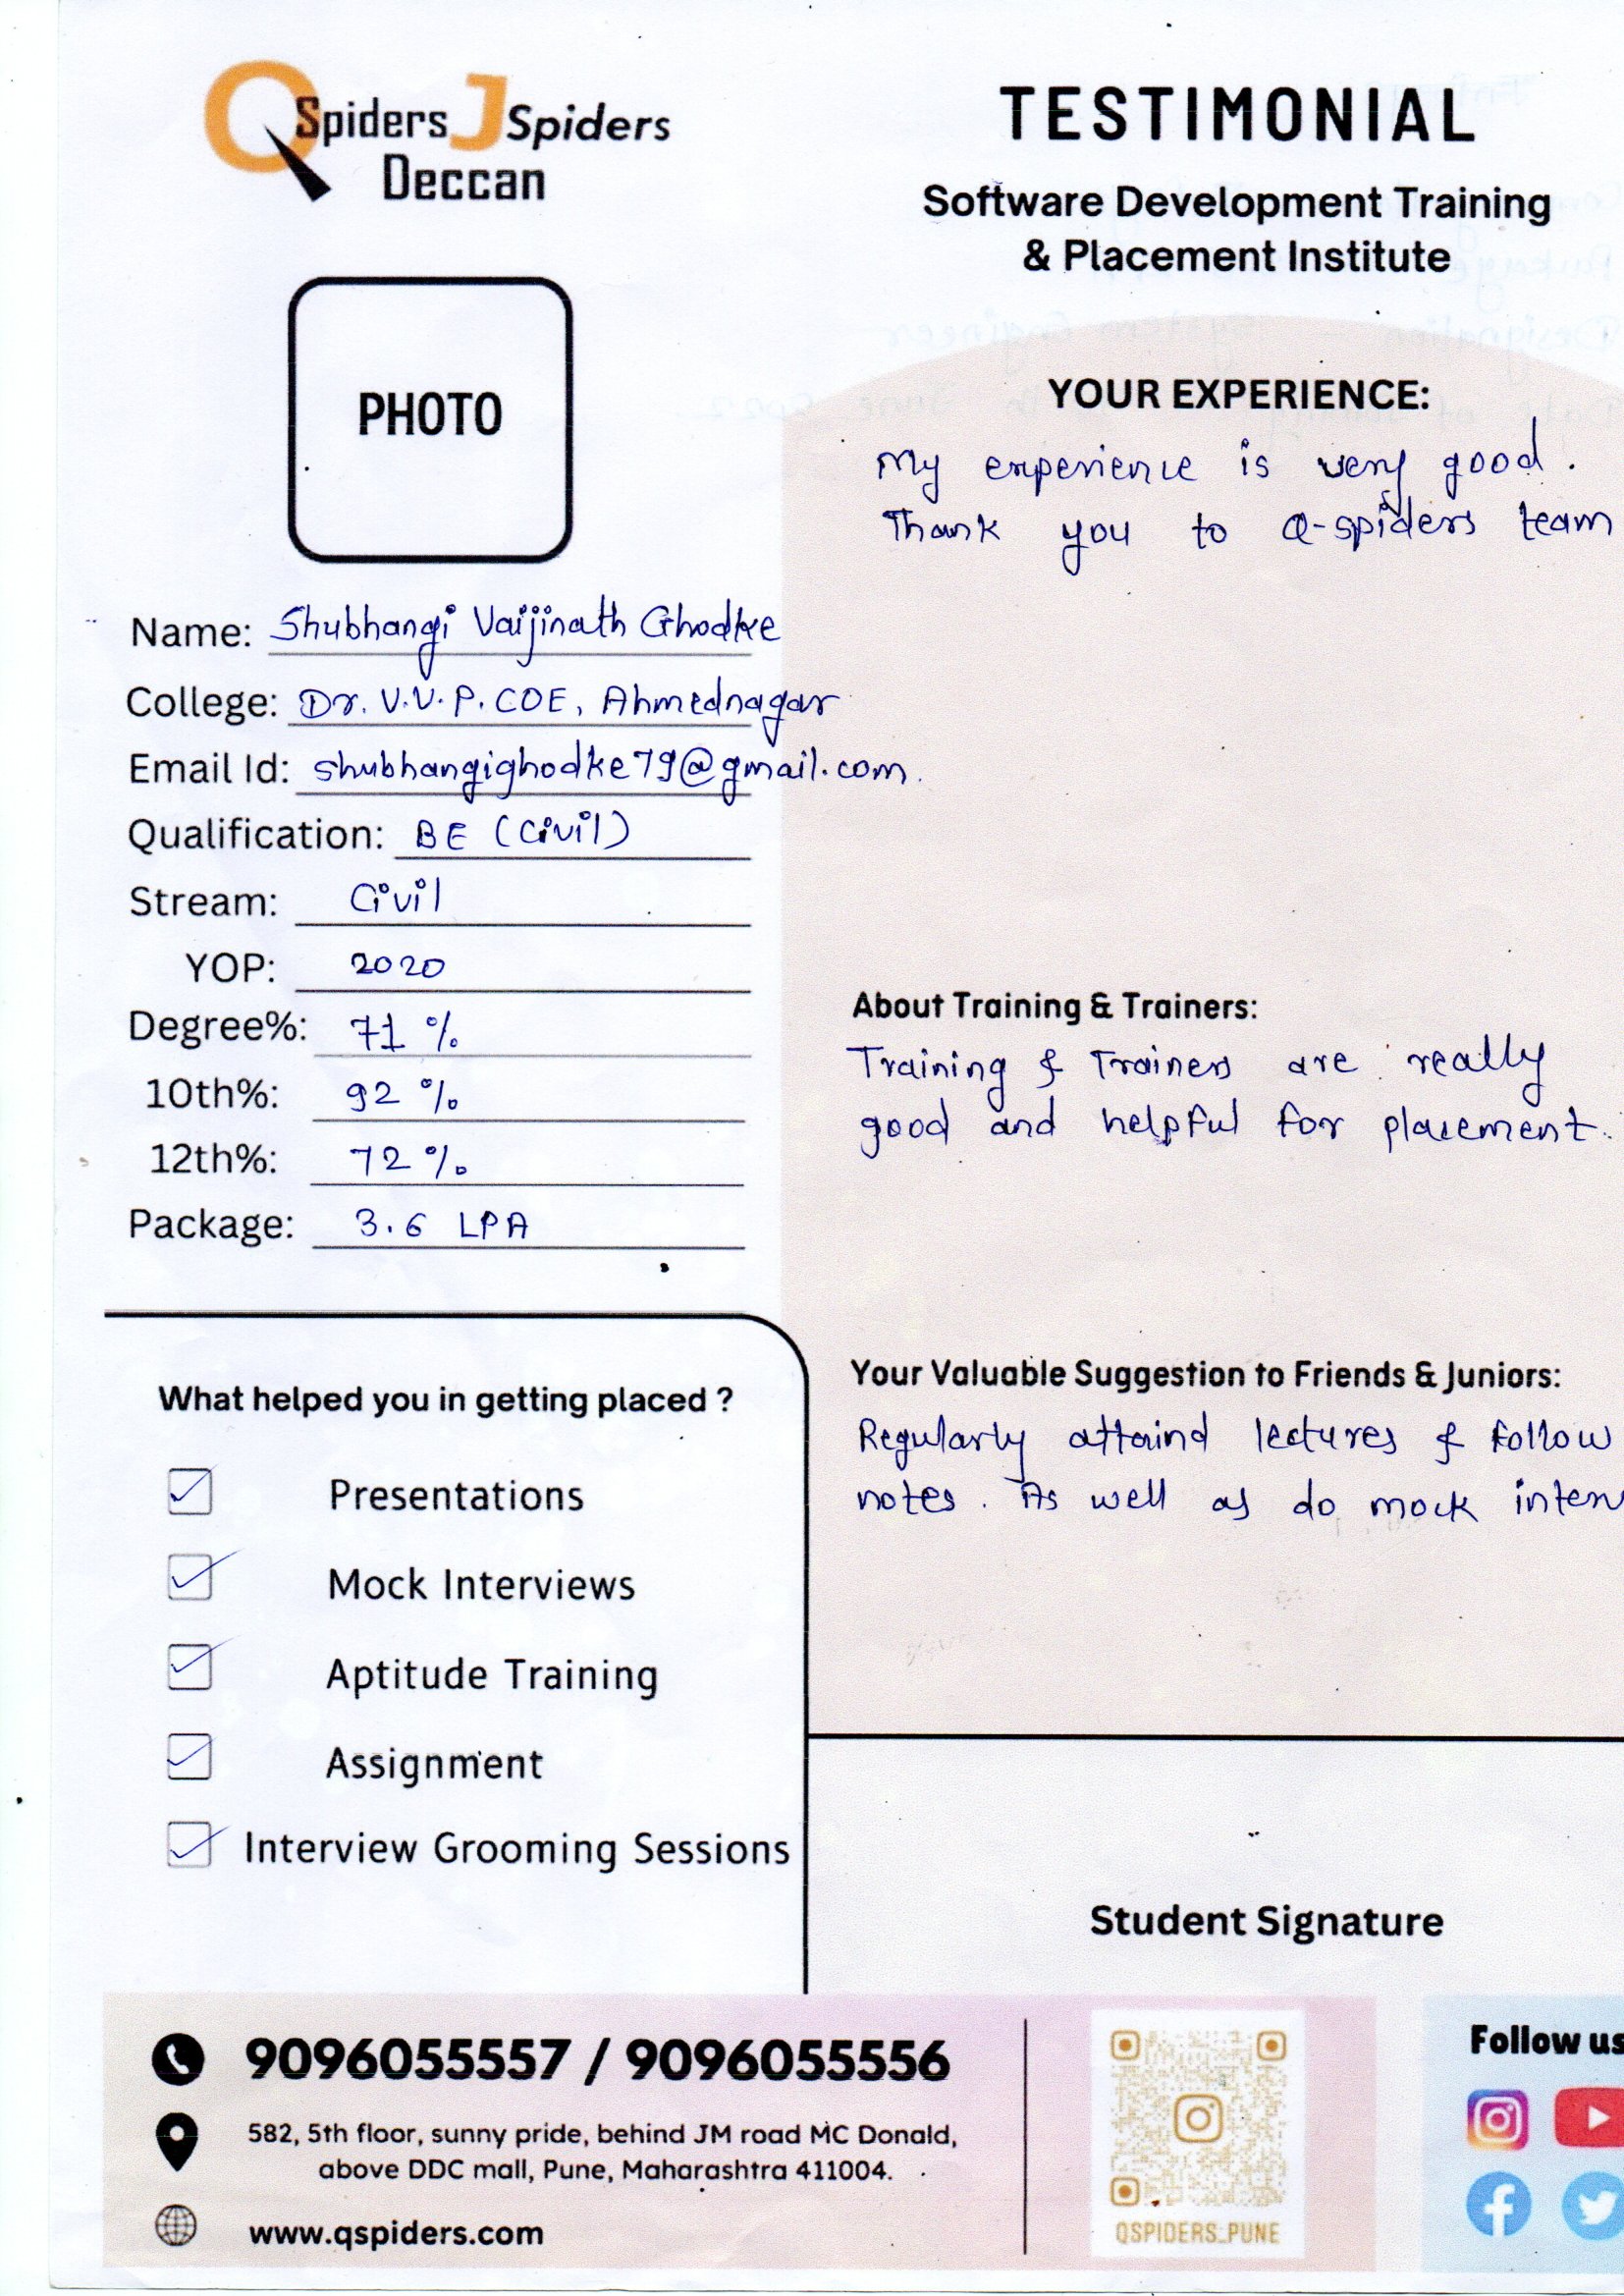 QSpiders JSpiders
Deccan
TESTIMONIAL
Software Development Training
& Placement Institute
PHOTO
Name: Shubhangi Vaijinath Ghodke
College: Dr. V.V.P. COE, Ahmednagar
Email Id: shubhangighodke79@gmail.com.
Qualification: BE (Civil)
Stream: Civil
YOP: 2020
Degree%: 71 %
10th%: 92 %
12th%: 72 %
Package: 3.6 LPA
YOUR EXPERIENCE:
My experience is very good.
Thank you to Q-spiders team
About Training & Trainers:
Training & Trainers are really
good and helpful for placement.
Your Valuable Suggestion to Friends & Juniors:
Regularly attaind lectures & follow
notes. As well as do mock
What helped you in getting placed ?
Presentations
Mock Interviews
Aptitude Training
Assignment
Interview Grooming Sessions
Student Signature
9096055557 / 9096055556
582, 5th floor, sunny pride, behind JM road MC Donald,
above DDC mall, Pune, Maharashtra 411004.
www.qspiders.com
QSPIDERS_PUNE
Follow us